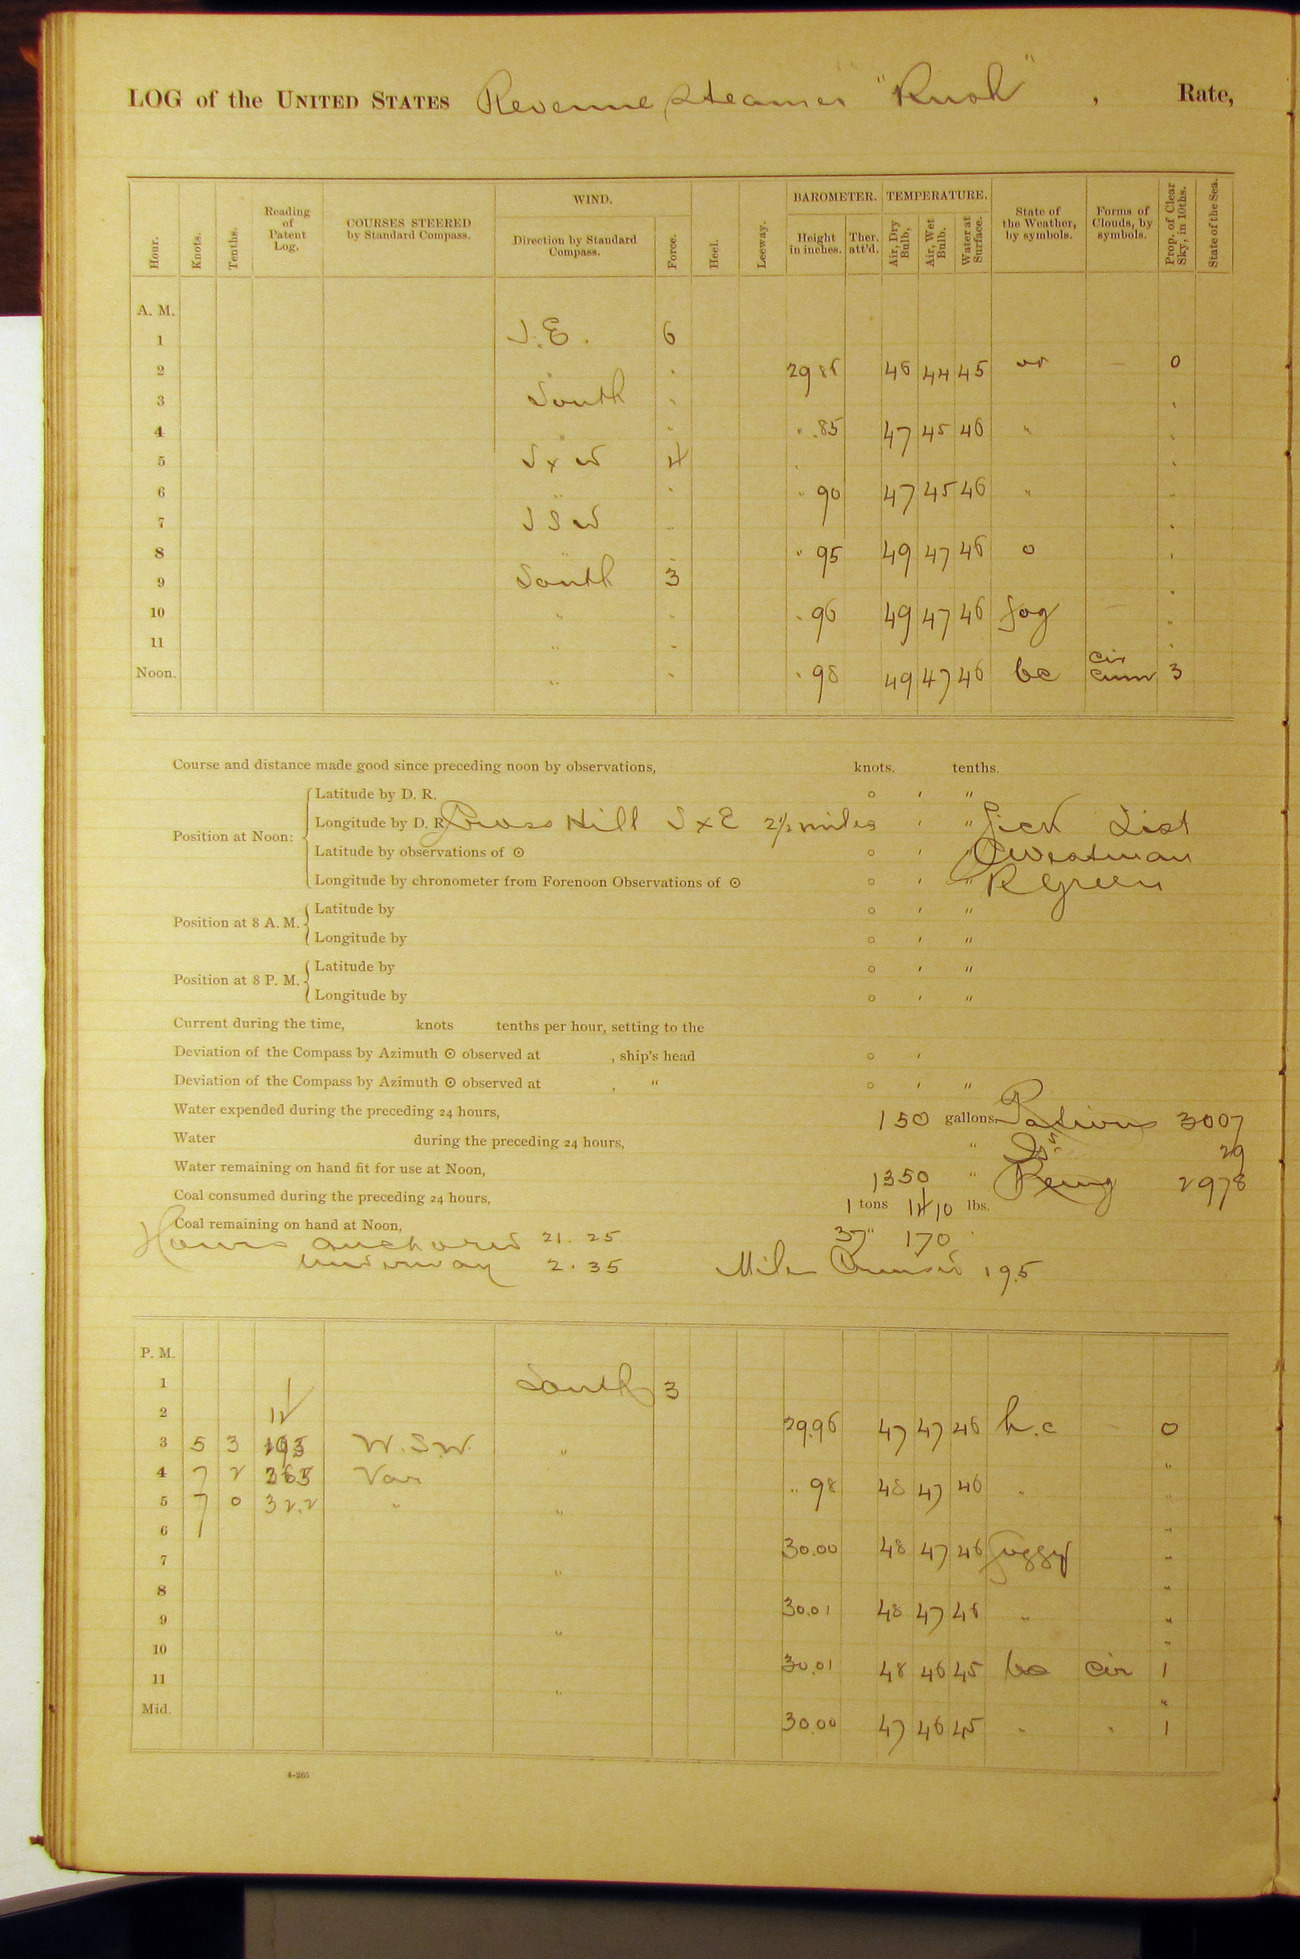 LOG of the UNITED STATES Revenue Steamer "Rush", Rate,
Hour. Knots. Tenths. Reading of Patent Log. COURSES STEERED by Standard Compass. WIND. Direction by Standard Compass. Force. Heel. Leeway. BAROMETER. Height in inches. Ther. att'd. TEMPERATURE. Air, Dry Bulb, Air, Wet Bulb. Water at Surface. State of the Weather, by symbols. Forms of Clouds, by symbols. Prop. of Clear Sky, in 10ths. State of the Sea.
A. M.
1 S.E. 6
2 " " 29 86 46 44 45 or — 0
3 South " "
4 " " " .85 47 45 46 " "
5 S x W 4 "
6 " " " 90 47 45 46 " "
7 S S W " "
8 " " " 95 49 47 46 o "
9 South 3 "
10 " " " 96 49 47 46 fog — "
11 " " "
Noon. " " " 98 49 47 46 bc cir cum 3
Course and distance made good since preceding noon by observations, knots. tenths.
Position at Noon:
Latitude by D. R. ° ′ ″
Longitude by D. R. Hill S x E 2½ miles ′ ″ Sick List
Latitude by observations of ☉ ° ′ ″ Westman
Longitude by chronometer from Forenoon Observations of ☉ ° ′ ″ R Green
Position at 8 A. M.
Latitude by ° ′ ″
Longitude by ° ′ ″
Position at 8 P. M.
Latitude by ° ′ ″
Longitude by ° ′ ″
Current during the time, knots tenths per hour, setting to the
Deviation of the Compass by Azimuth ☉ observed at , ship's head ° ′
Deviation of the Compass by Azimuth ☉ observed at , " ° ′ ″
Water expended during the preceding 24 hours, 150 gallons. Rations 3007
Water during the preceding 24 hours, " 29
Water remaining on hand fit for use at Noon, 1350 " Remg 2978
Coal consumed during the preceding 24 hours, 1 tons 1410 lbs.
Coal remaining on hand at Noon, 37 " 170
Hours anchored 21.25
underway 2.35 Miles Cruised 19.5
P. M.
1 South 3
2 29.96 47 47 46 b.c — 0
3 5 3 W.S.W. "
4 7 2 Var " 98 48 47 46 " "
5 7 0 32.2 " "
6 30.00 48 47 46 foggy "
7 "
8 30.01 48 47 46 " "
9 "
10 30.01 48 46 45 bc cir 1
11 " "
Mid. 30.00 47 46 45 " " 1
4—265